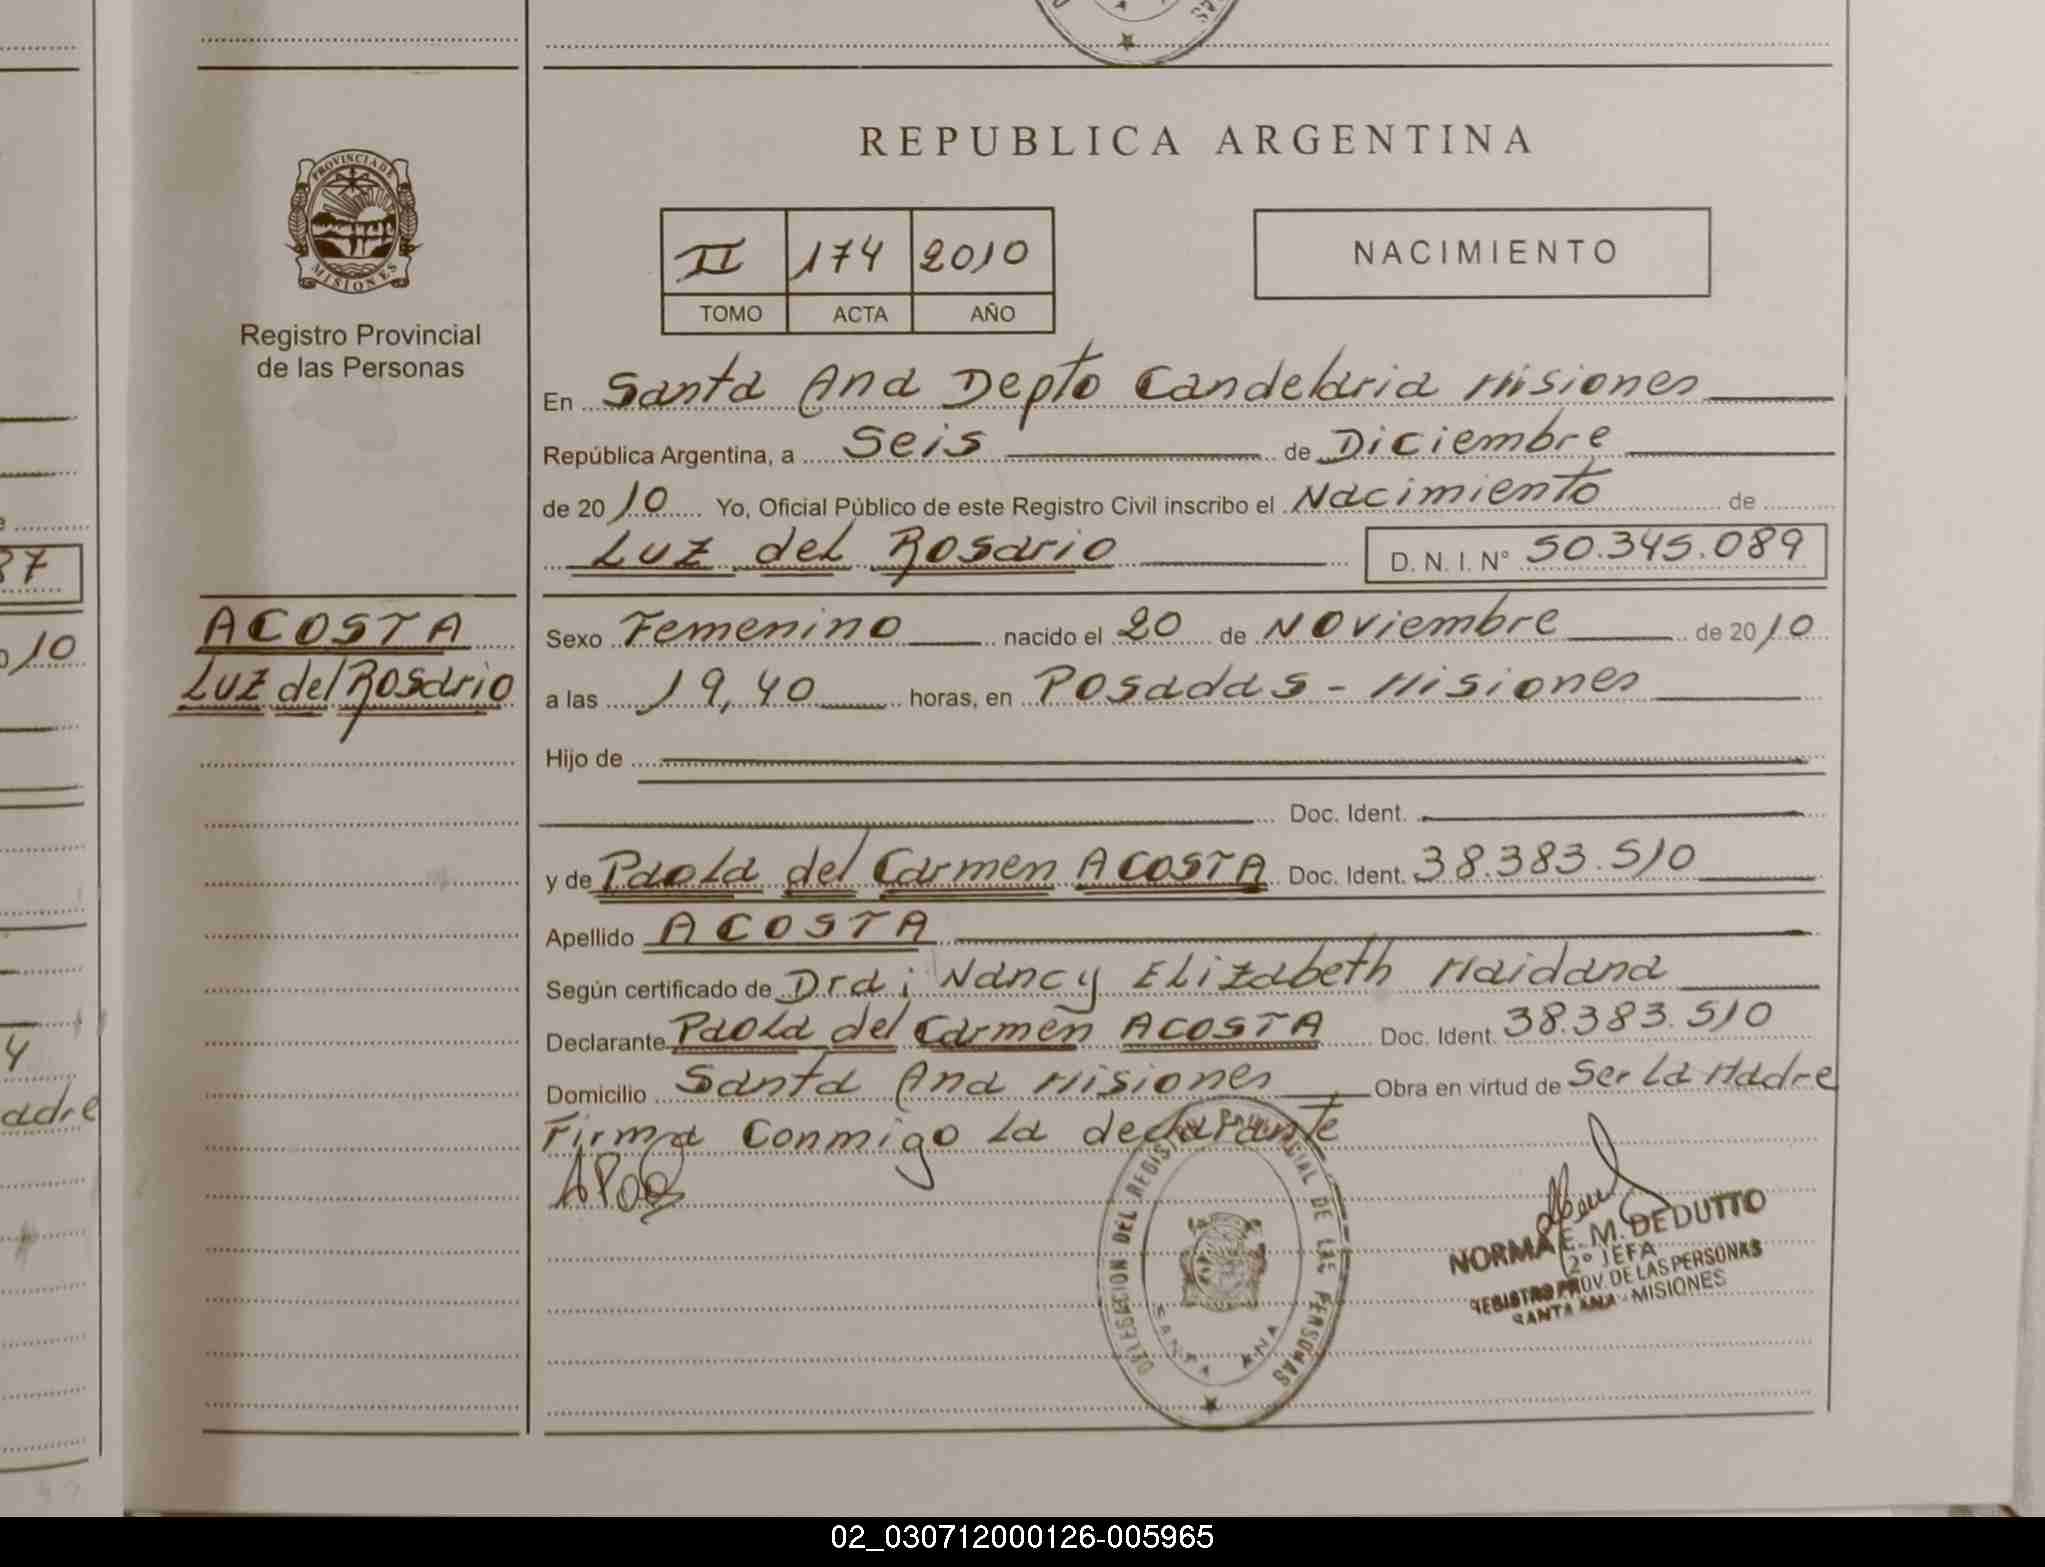 REPUBLICA ARGENTINA
PROVINCIA DE
MISIONES
Registro Provincial
de las Personas
II 174 2010
TOMO ACTA AÑO
NACIMIENTO
En Santa Ana Depto Candelaria Misiones
República Argentina, a Seis de Diciembre
de 2010 Yo, Oficial Público de este Registro Civil inscribo el Nacimiento de
Luz del Rosario D. N. I. N° 50.345.089
ACOSTA
Luz del Rosario
Sexo Femenino nacido el 20 de Noviembre de 2010
a las 19,40 horas, en Posadas - Misiones
Hijo de
Doc. Ident.
y de Paola del Carmen ACOSTA Doc. Ident. 38.383.510
Apellido ACOSTA
Según certificado de Dra; Nancy Elizabeth Maidana
Declarante Paola del Carmen ACOSTA Doc. Ident. 38.383.510
Domicilio Santa Ana Misiones Obra en virtud de Ser la Madre
Firma Conmigo la declarante
DELEGACION DEL REGISTRO PROVINCIAL DE LAS PERSONAS
SANTA ANA
NORMA E. M. DE DUTTO
2° JEFA
REGISTRO PROV. DE LAS PERSONAS
SANTA ANA - MISIONES
37
10
4
adre
02_030712000126-005965